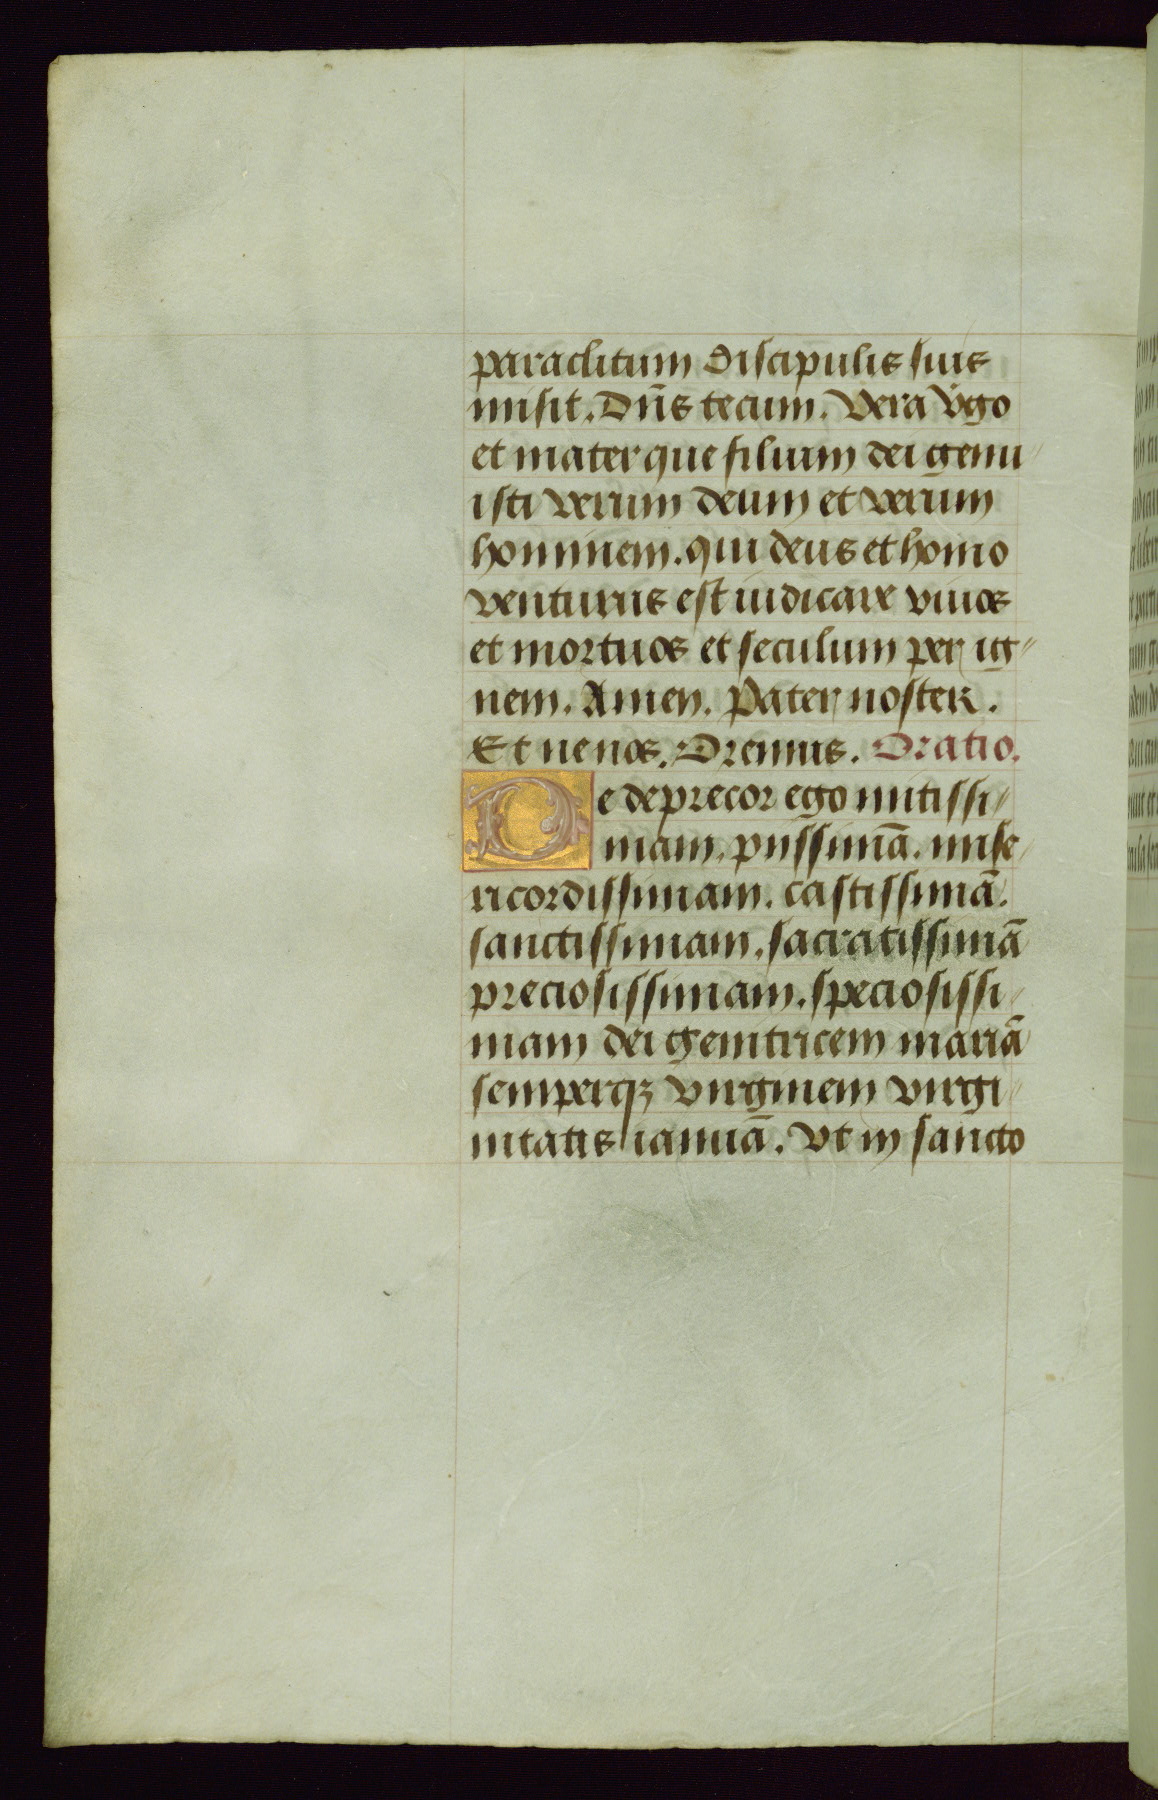 paraclitum discipulis suis
misit. Dñs tecum. Vera v̇go
et mater que filium dei genu〃
isti verum deum et verum
hominem. qui deus et homo
venturus est iudicare viuos
et mortuos et seculum per ig〃
nem. Amen. Pater noster.
Et ne nos. Oremus. Oratio.
De deprecor ego mitissi〃
mam. piissimā. mise〃
ricordissimam. castissimā.
sanctissimam. sacratissimā
preciosissimam. speciosissi〃
mam dei genitricem mariā
semperqꝫ virginem virgi〃
nitatis ianuā. Vt in sancto